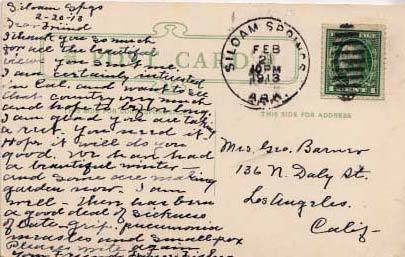 Siloam Spgs
2-20-13
Dear Friend
I thank you so much
for all the beautiful
views you sent me
I am certainly interested
in Cal. and want to see
that country very much
and hope to
I am glad you are taking
a rest. You need it.
Hope it will do you
good. We have had
a beautiful winter
and some are making
garden now. I am
well - there has been
a good deal of sickness
of late - grip, pneumonia
measles and small pox
Please write again
Your Friend
POST CARD
THIS SIDE FOR ADDRESS
SILOAM SPRINGS
FEB
21
1913
ARK.
Mrs. Geo. Barnero
136 N. Daly St.
Los Angeles.
Calif-